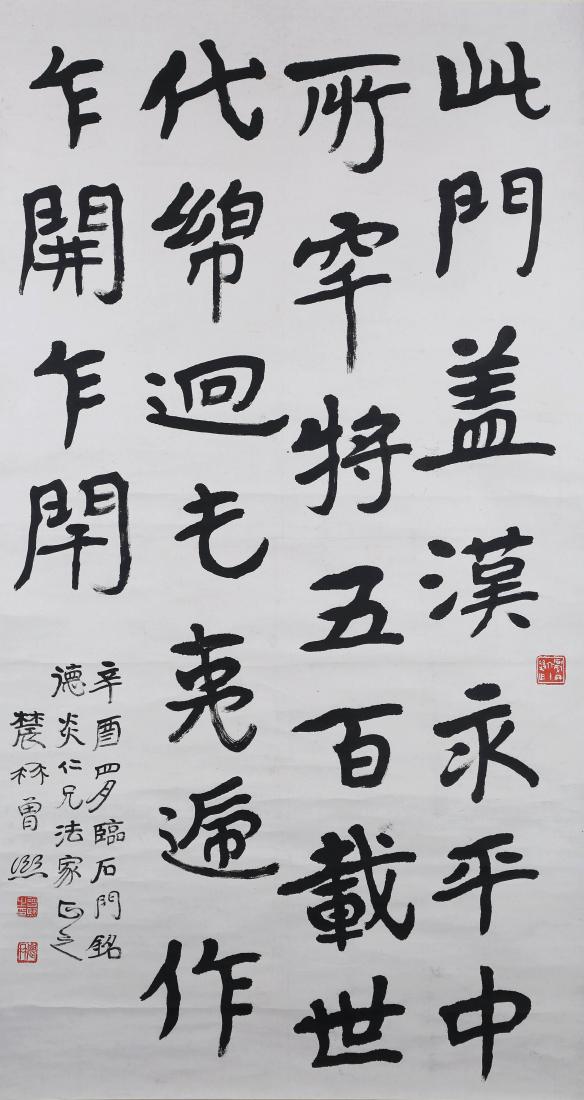 此門盖漢永平中
所穿將五百載世
代綿迴屯夷遞作
乍開乍閉
辛酉四月臨石門銘
德炎仁兄法家正之
農髯曾熙